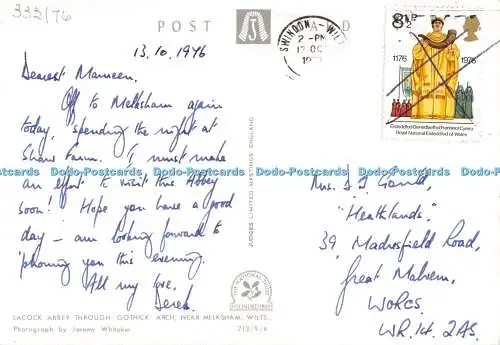 333/76
POST CARD
13.10.1976
Dearest Maureen.
Off to Melksham again
today, spending the night at
Shaw Farm. I must make
an effort to visit this Abbey
soon! Hope you have a good
day – am looking forward to
'phoning you this evening.
All my love,
Derek.
LACOCK ABBEY THROUGH 'GOTHICK' ARCH, NEAR MELKSHAM, WILTS.
Photograph by Jeremy Whitaker
712/9/4
JUDGES LIMITED HASTINGS ENGLAND
THE NATIONAL TRUST
SWINDON WILTS
2 - PM
13 OC
8½P
1176
1976
Eisteddfod Genedlaethol Frenhinol Cymru
Royal National Eisteddfod of Wales
Mrs. D J Gault,
"Heathlands."
39, Madresfield Road,
Great Malvern,
WORCS.
WR.14. 2AS.
Dodo-Postcards Dodo-Postcards Dodo-Postcards Dodo-Postcards